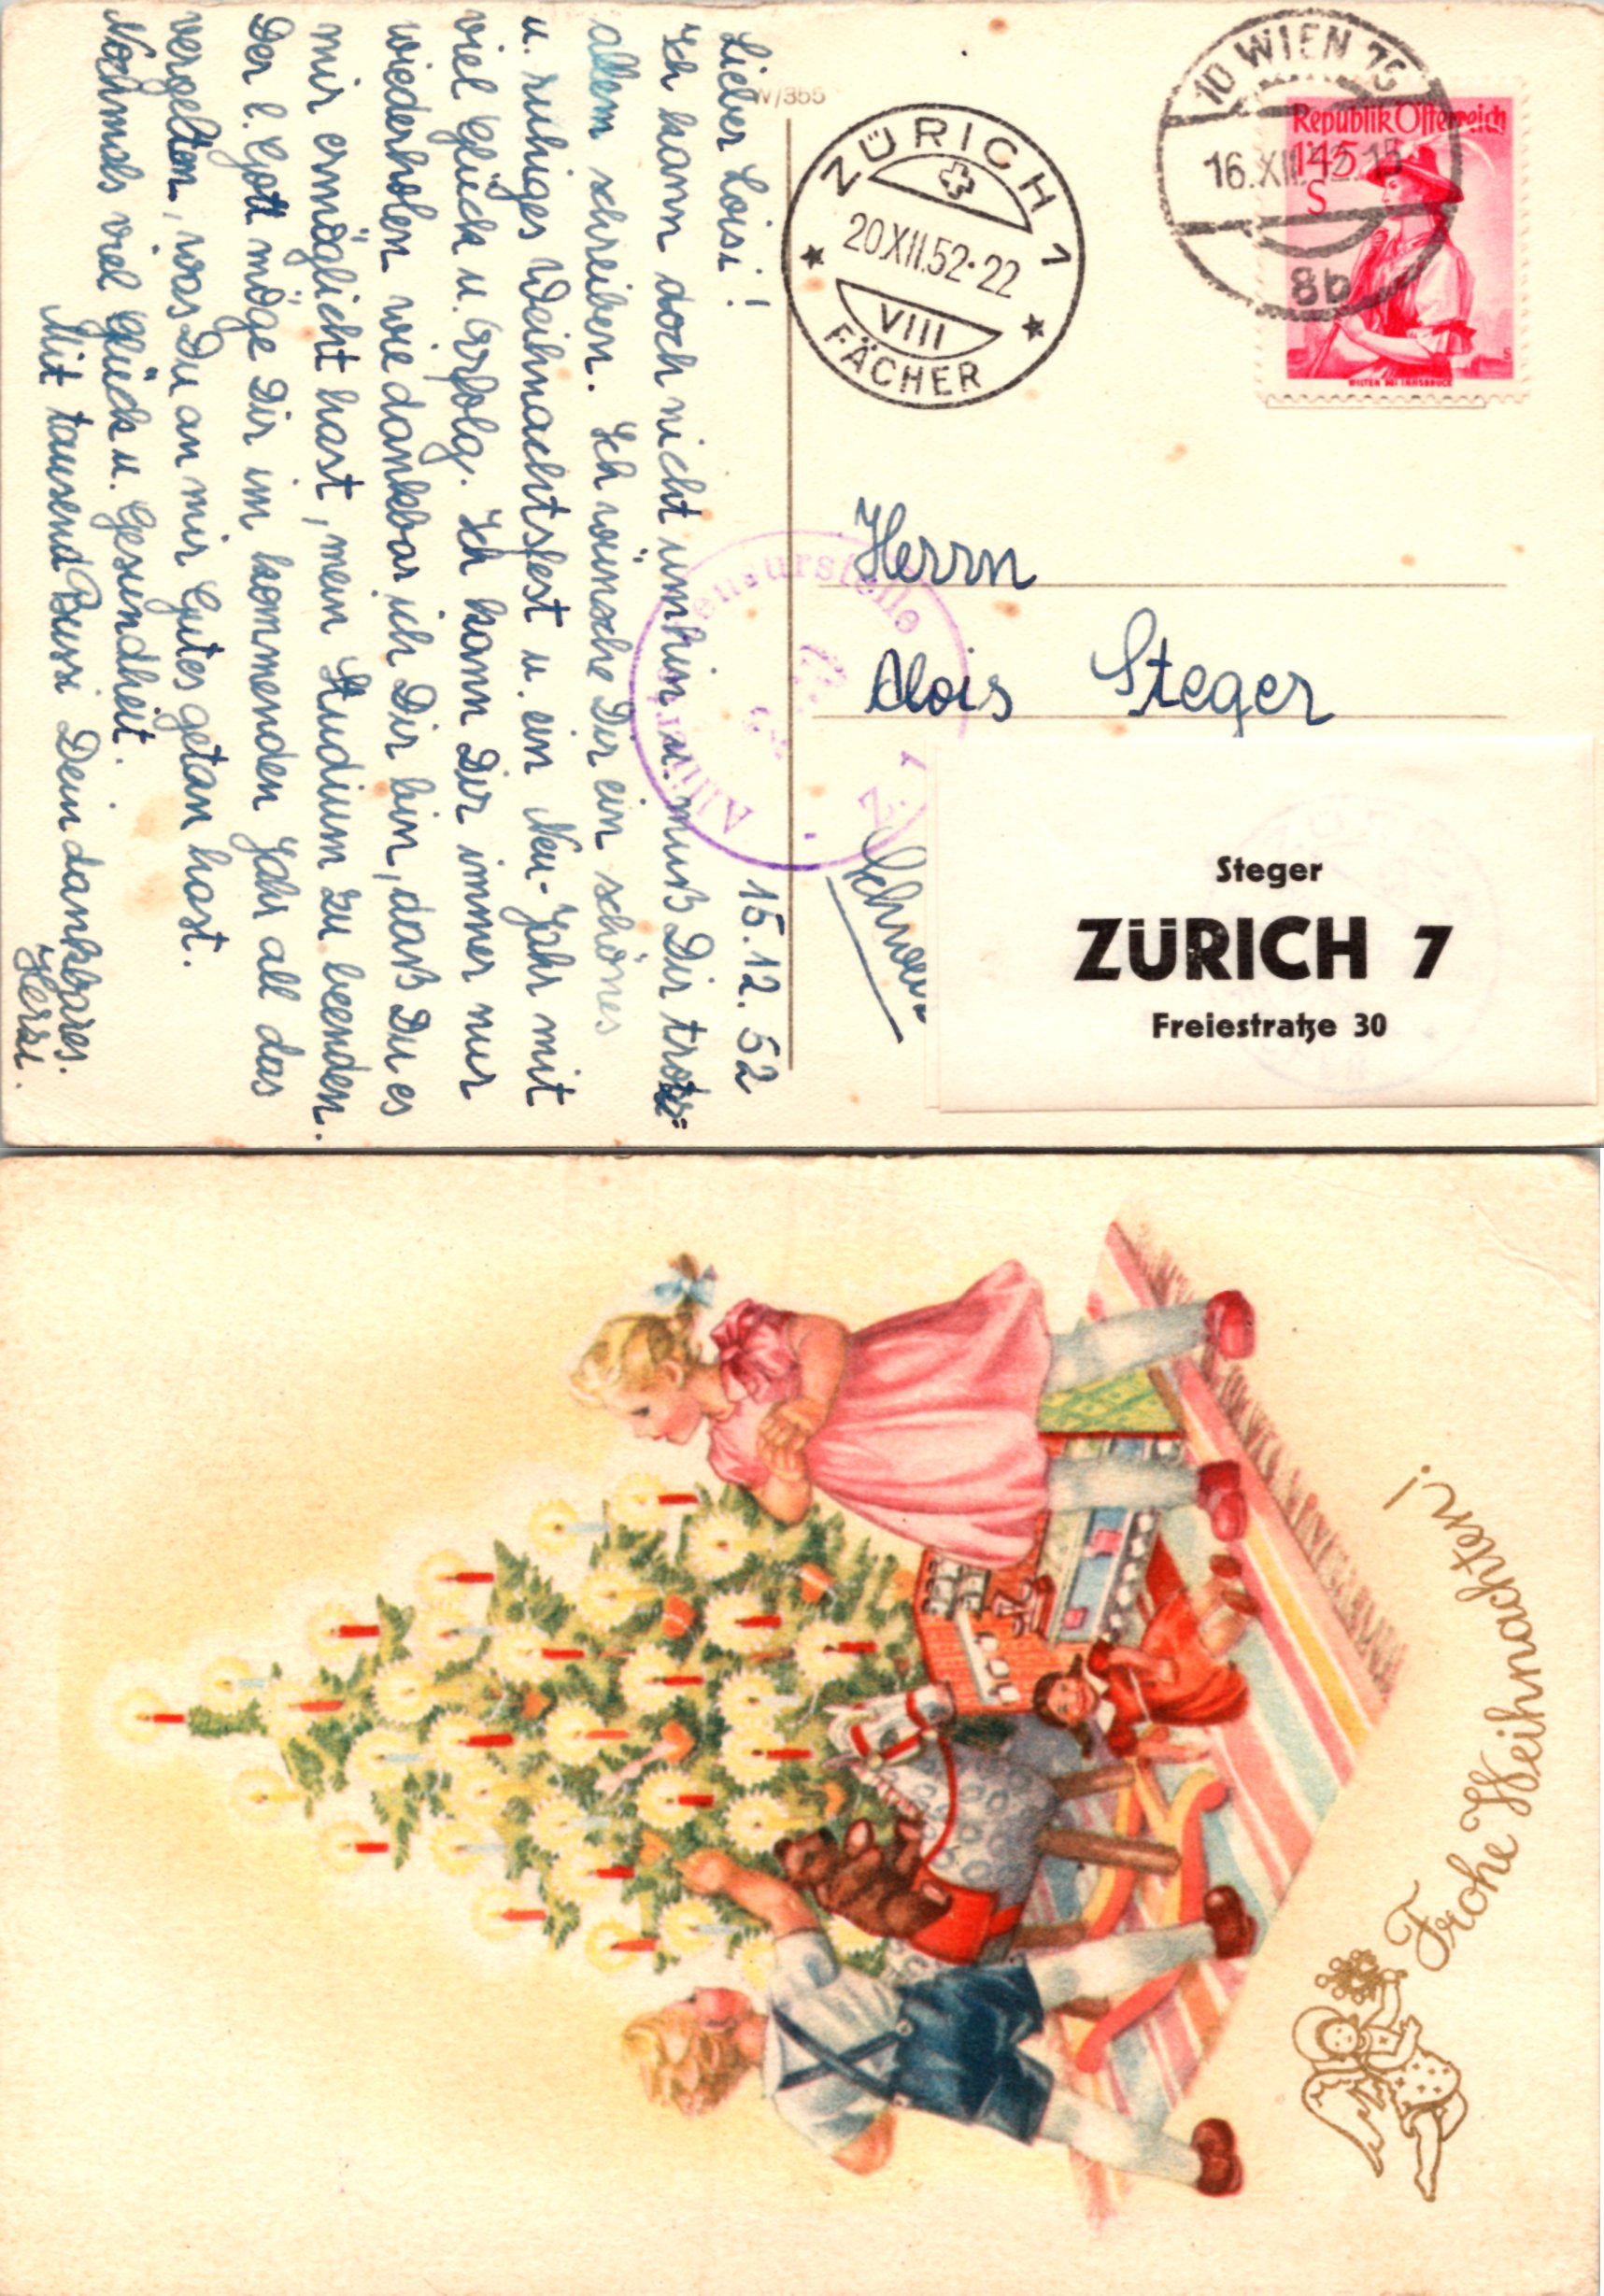 Lieber Loisi! 15.12.52
Ich kann doch nicht umhin u. muß Dir trotz-
allem schreiben. Ich wünsche Dir ein schönes
u. ruhiges Weihnachtsfest u. ein Neu-Jahr mit
viel Glück u. Erfolg. Ich kann Dir immer nur
wiederholen wie dankbar ich Dir bin, daß Du es
mir ermöglicht hast, mein Studium zu beenden.
Der l. Gott möge Dir im kommenden Jahr all das
vergelten, was Du an mir Gutes getan hast.
Nochmals viel Glück u. Gesundheit.
Mit tausend Bussi Dein dankbares
Herzi.
W/355
ZÜRICH 1
20.XII.52-22
VIII
FÄCHER
10 WIEN 75
16.XII.52.15
8b
Republik Österreich
1'45
S
WILTEN BEI INNSBRUCK
Zensurstelle
Alliierte
Herrn
Alois Steger
Z. 7
Steger
ZÜRICH 7
Freiestraße 30
Frohe Weihnachten!